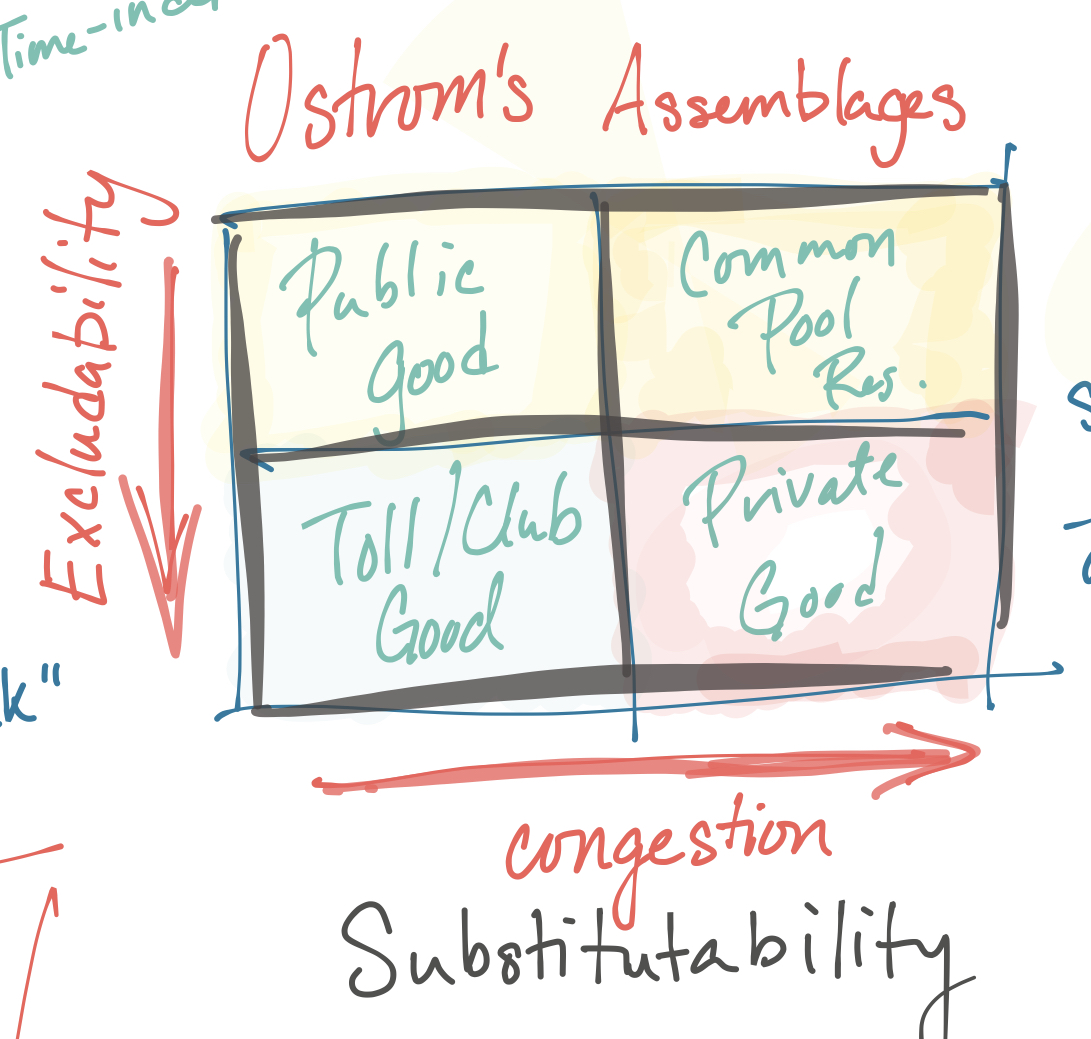 Ostrom's Assemblages
Excludability
Public
Good
Common
Pool
Res.
Toll/Club
Good
Private
Good
k"
congestion
Substitutability